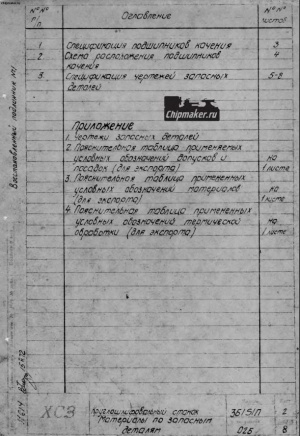 №№ п/п Оглавление №№ листов
1. Спецификация подшипников качения 3
2 Схема расположения подшипников качения 4
3. Спецификация чертежей запасных деталей 5-8
Chipmaker.ru
Приложение
1. Чертежи запасных деталей
2. Пояснительная таблица применяемых
условных обозначений допусков и
посадок (для экспорта) на 1 листе
3. Пояснительная таблица примененных
условных обозначений материалов
(для экспорта) на 1 листе
4. Пояснительная таблица примененных
условных обозначений термической
обработки (для экспорта) на 1 листе
ХСЗ
Круглошлифовальный станок
Материалы по запасным
деталям
3Б151П 2
02Б 8